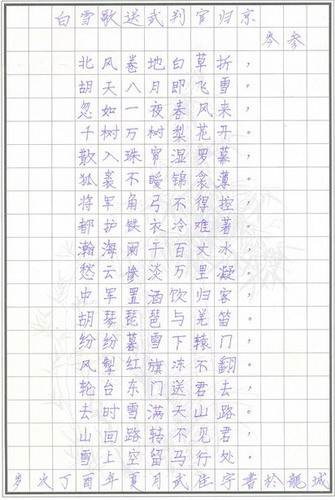 白雪歌送武判官归京
岑参
北风卷地白草折，
胡天八月即飞雪。
忽如一夜春风来，
千树万树梨花开。
散入珠帘湿罗幕，
狐裘不暖锦衾薄。
将军角弓不得控，
都护铁衣冷难著。
瀚海阑干百丈冰，
愁云惨淡万里凝。
中军置酒饮归客，
胡琴琵琶与羌笛。
纷纷暮雪下辕门，
风掣红旗冻不翻。
轮台东门送君去，
去时雪满天山路。
山回路转不见君，
雪上空留马行处。
岁次丁酉年夏月武佳宇書於龍城